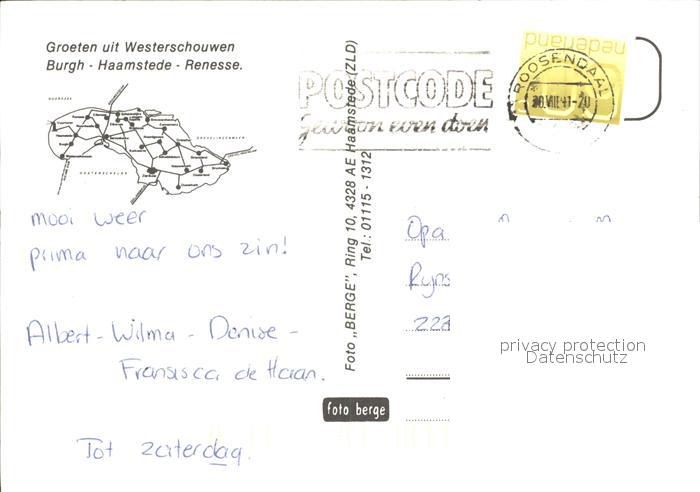 Groeten uit Westerschouwen
Burgh - Haamstede - Renesse.
POSTCODE
gewoon even doen
ROOSENDAAL
nederland
mooi weer
prima naar ons zin!
Albert - Wilma - Denise -
Fransisca de Haan.
Tot zaterdag.
Foto „BERGE", Ring 10, 4328 AE Haamstede (ZLD)
Tel.: 01115 - 1312
foto berge
Opa
Ryns
222
privacy protection
Datenschutz